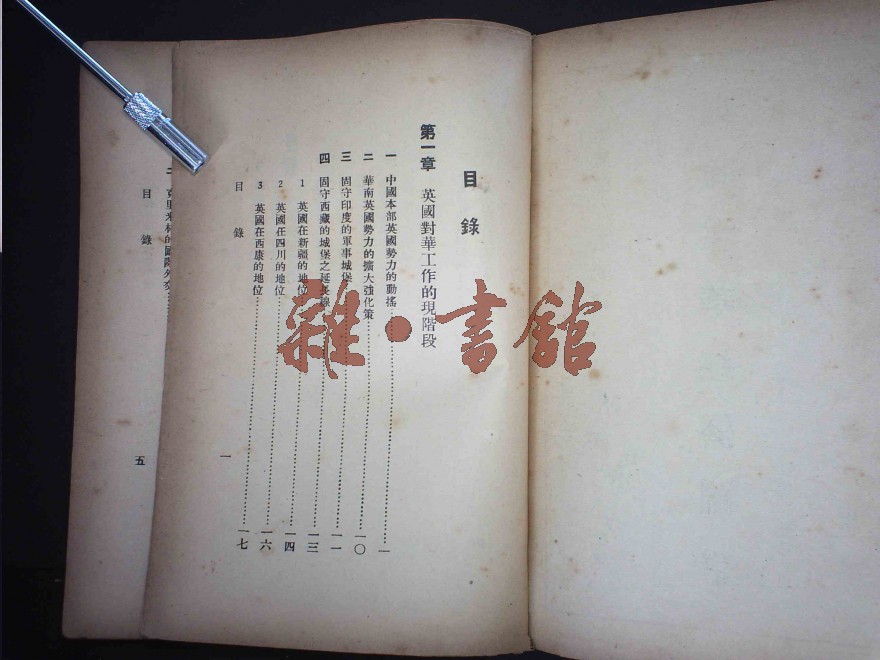 目錄
第一章 英國對華工作的現階段
一 中國本部英國勢力的動搖……一
二 華南英國勢力的擴大強化策……一〇
三 固守印度的軍事城堡……一一
四 固守西藏的城堡之延長線……一三
1 英國在新疆的地位……一四
2 英國在四川的地位……一六
3 英國在西康的地位……一七
目錄
一
二
目錄
五
雜·書館